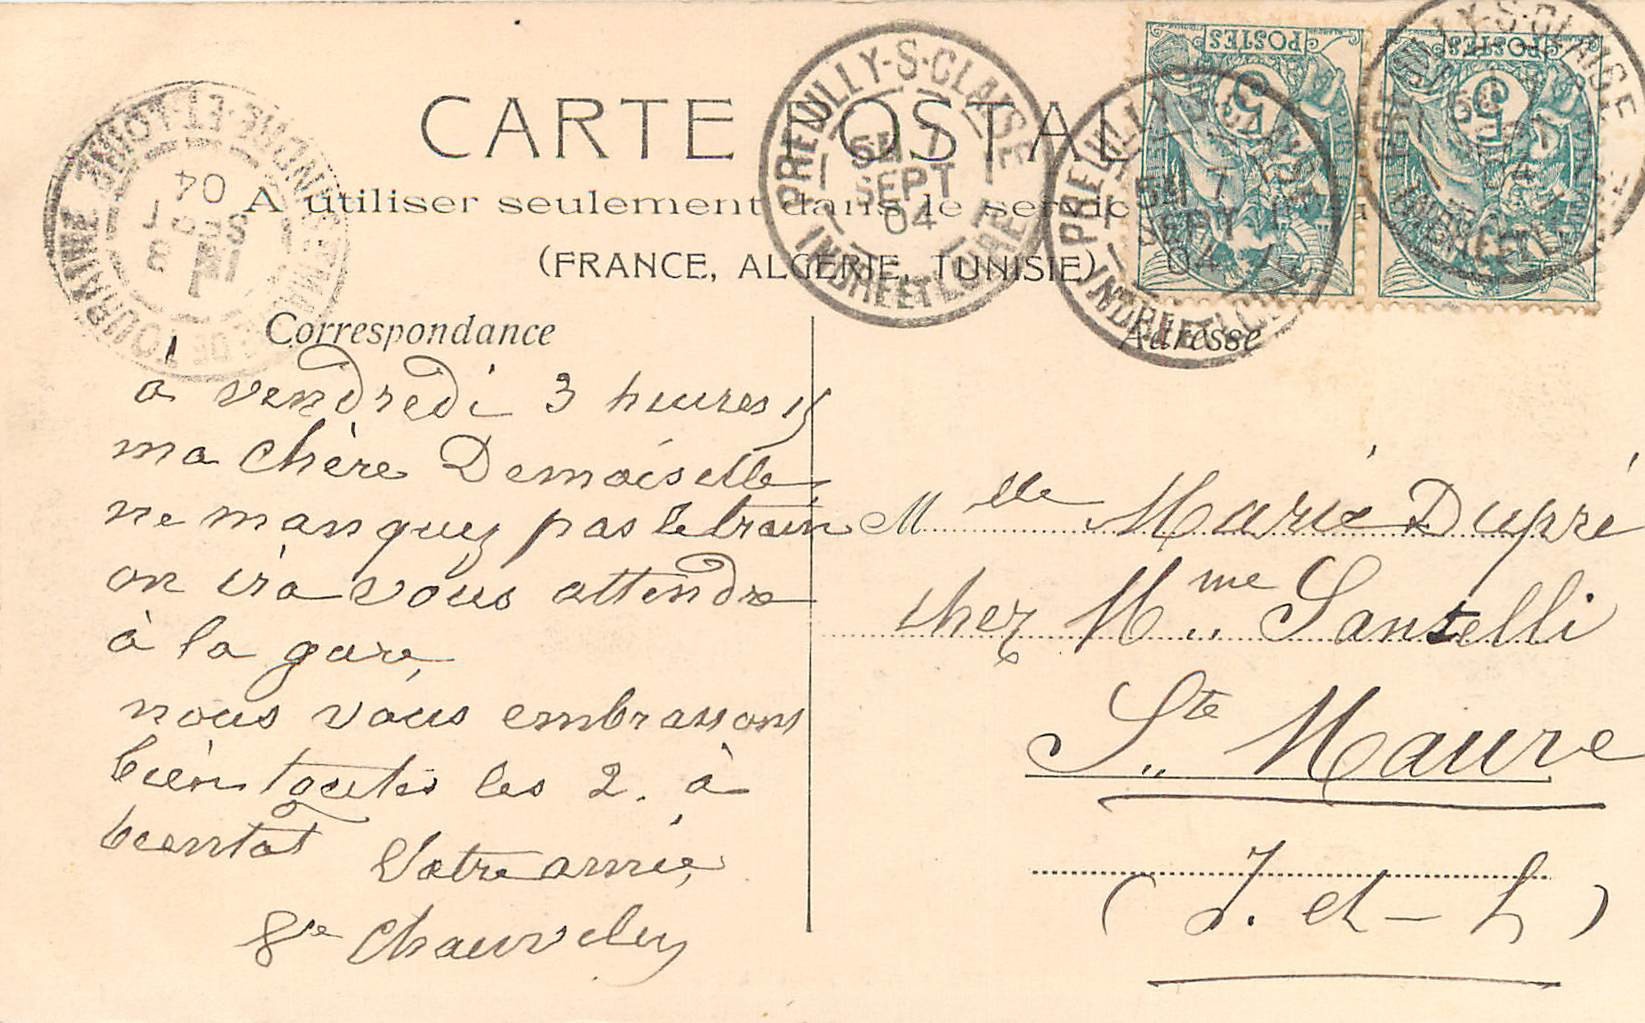 CARTE POSTALE
A utiliser seulement dans le service
(FRANCE, ALGÉRIE, TUNISIE)
PREUILLY-S-CLAISE
7
SEPT
04
INDRE ET LOIRE
PREUILLY-S-CLAISE
7
SEPT
04
INDRE ET LOIRE
POSTES
5
POSTES
5
PREUILLY-S-CLAISE
INDRE ET LOIRE
STE MAURE DE TOURAINE
INDRE-ET-LOIRE
8
SEPT
04
Correspondance
à vendredi 3 heures ½
ma chère Demoiselle
ne manquez pas le train
on ira vous attendre
à la gare,
nous vous embrassons
bien toutes les 2. à
bientot Votre amie,
Vve
Adresse
Mlle Marie Dupré
chez Mme Santelli
Ste Maure
(I. et - L)